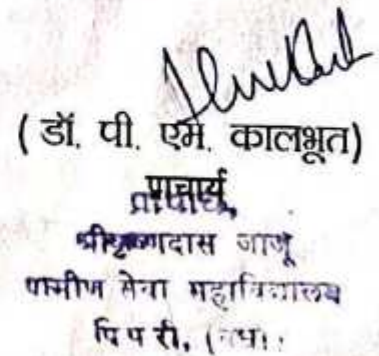 (डॉ. पी. एम. कालभूत)
प्राचार्य
प्राचार्य,
श्रीकृष्णदास जाजू
ग्रामीण सेवा महाविद्यालय
पिपरी, (वर्धा)